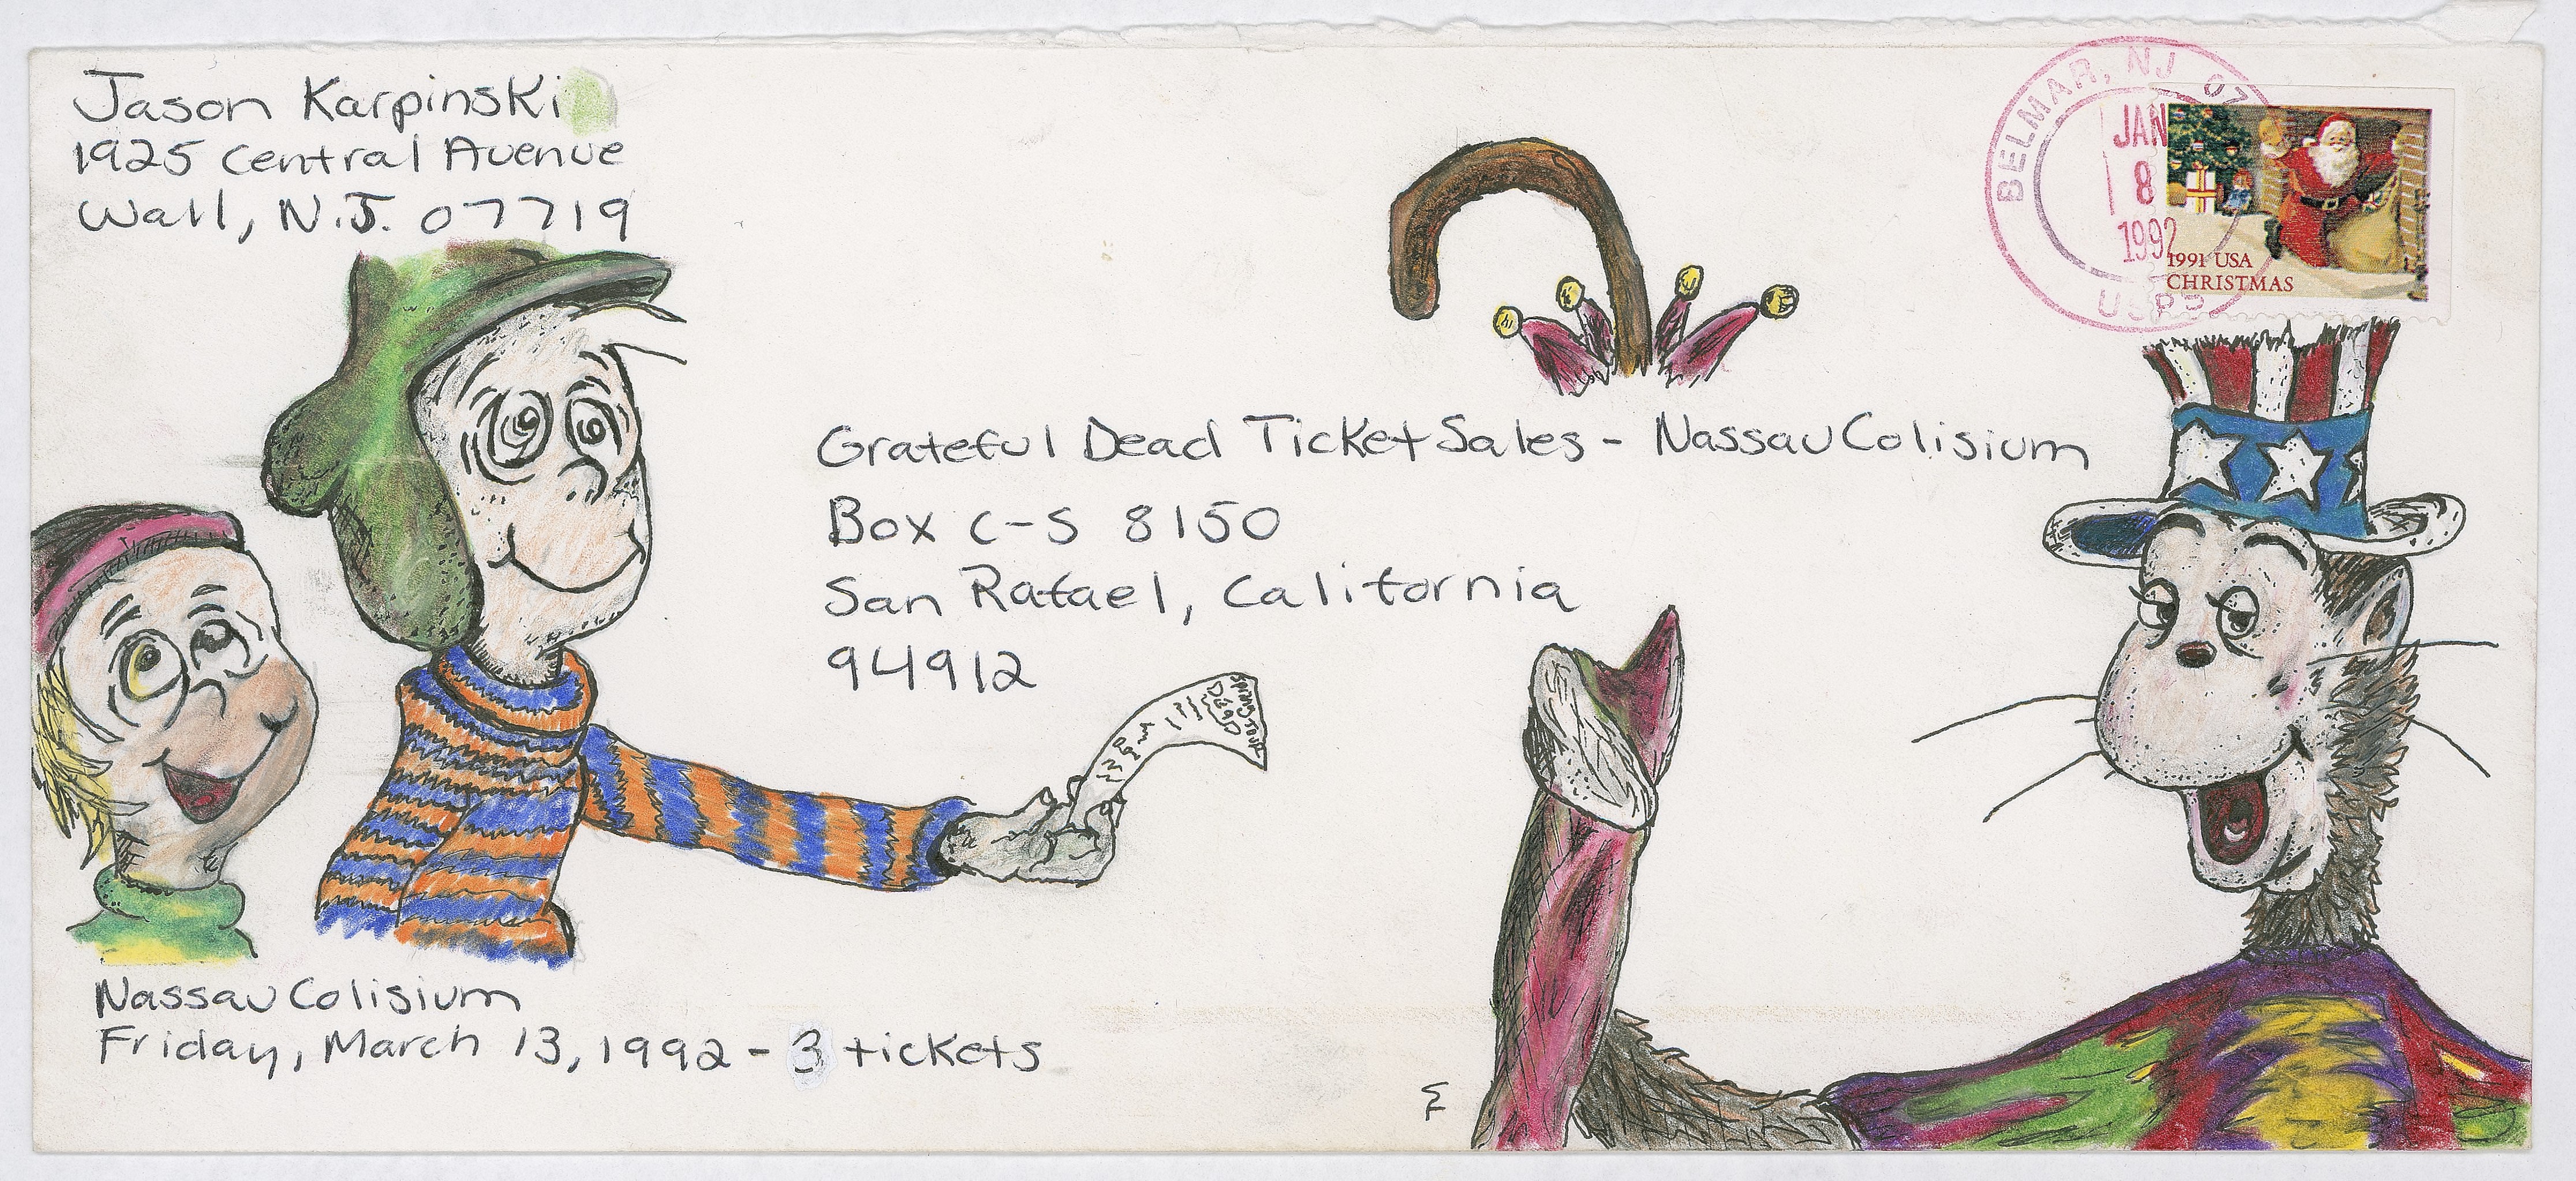 Jason Karpinski
1925 Central Avenue
Wall, N.J. 07719
BELMAR, NJ 07
JAN
8
1992
USPS
1991 USA
CHRISTMAS
Grateful Dead Ticket Sales - Nassau Colisium
Box C-S 8150
San Rafael, California
94912
Spring Tour
Dead
Nassau Colisium
Friday, March 13, 1992 - 3 tickets